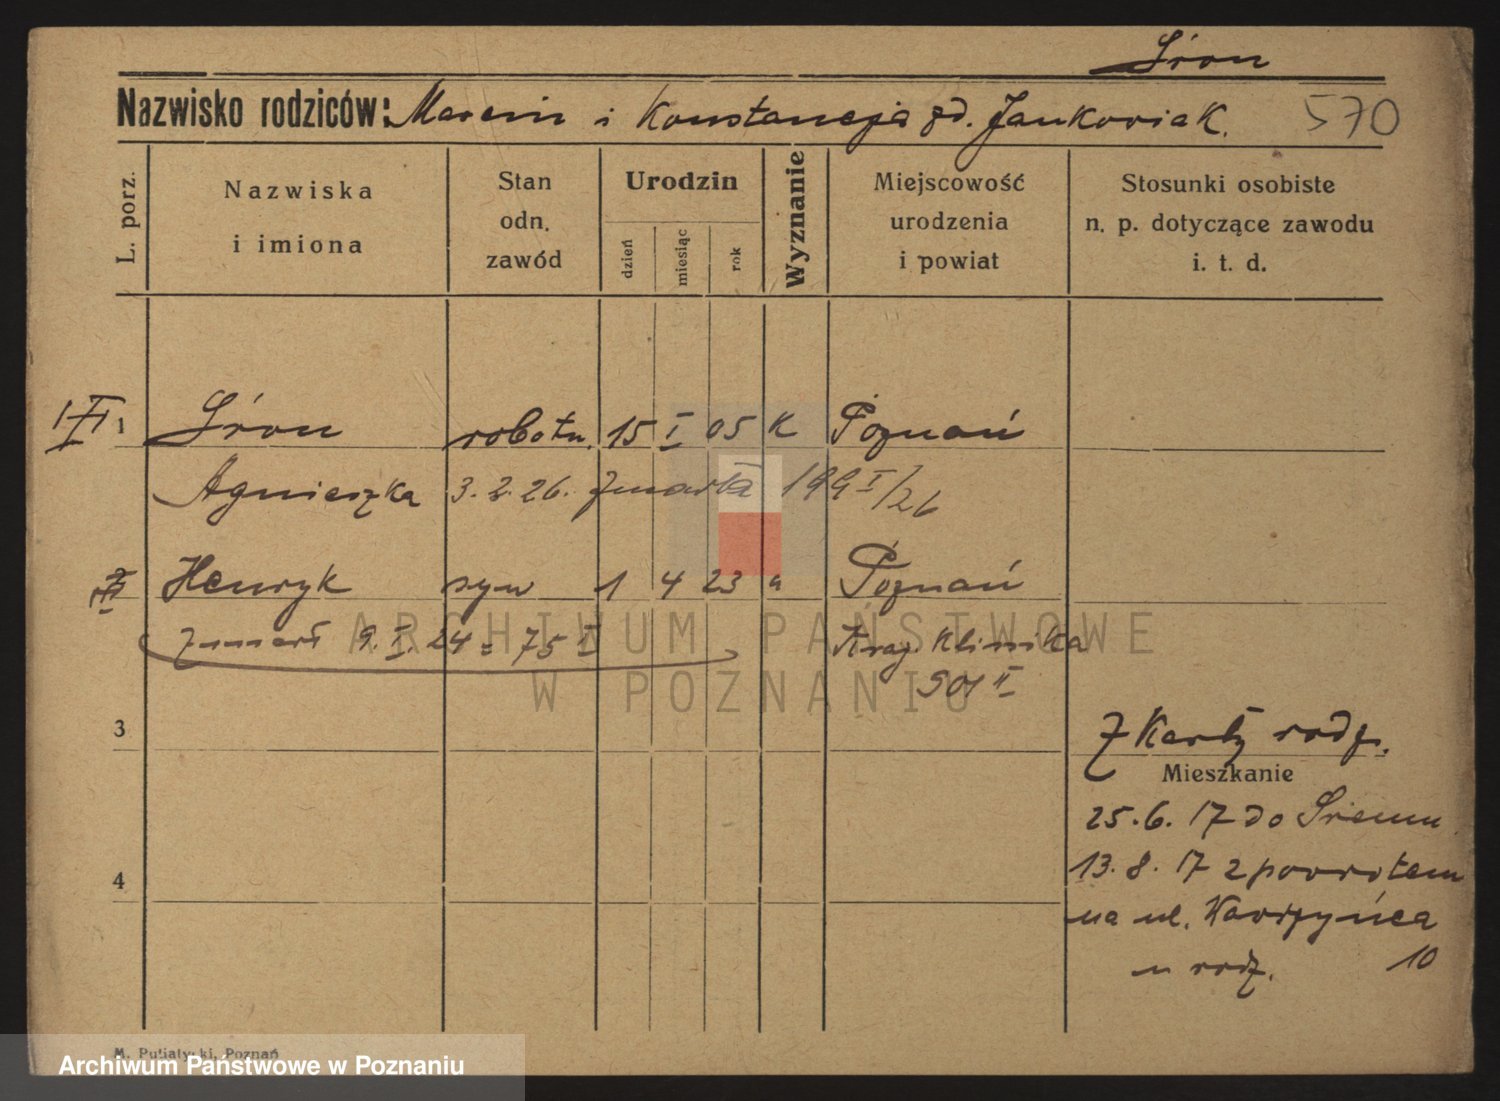 Śron
Nazwisko rodziców: Marcin i Konstancja zd. Jankowiak.
570
L. porz.
Nazwiska
i imiona
Stan
odn.
zawód
Urodzin
dzień
miesiąc
rok
Wyznanie
Miejscowość
urodzenia
i powiat
Stosunki osobiste
n. p. dotyczące zawodu
i. t. d.
1 Śron robotn. 15 I 05 K Poznań
Agnieszka 3.2.26. zmarła 199 I/26
Henryk syn 1 4 23 " Poznań
zmarł 9. I. 24 = 75 I Kraj. Klinika
901 II
ARCHIWUM PAŃSTWOWE
W POZNANIU
3
Z Karty rodz.
Mieszkanie
25.6.17 do Śremu
13.8.17 z powrotem
4
na ul.
u rodz. 10
M. Putiatycki, Poznań
Archiwum Państwowe w Poznaniu